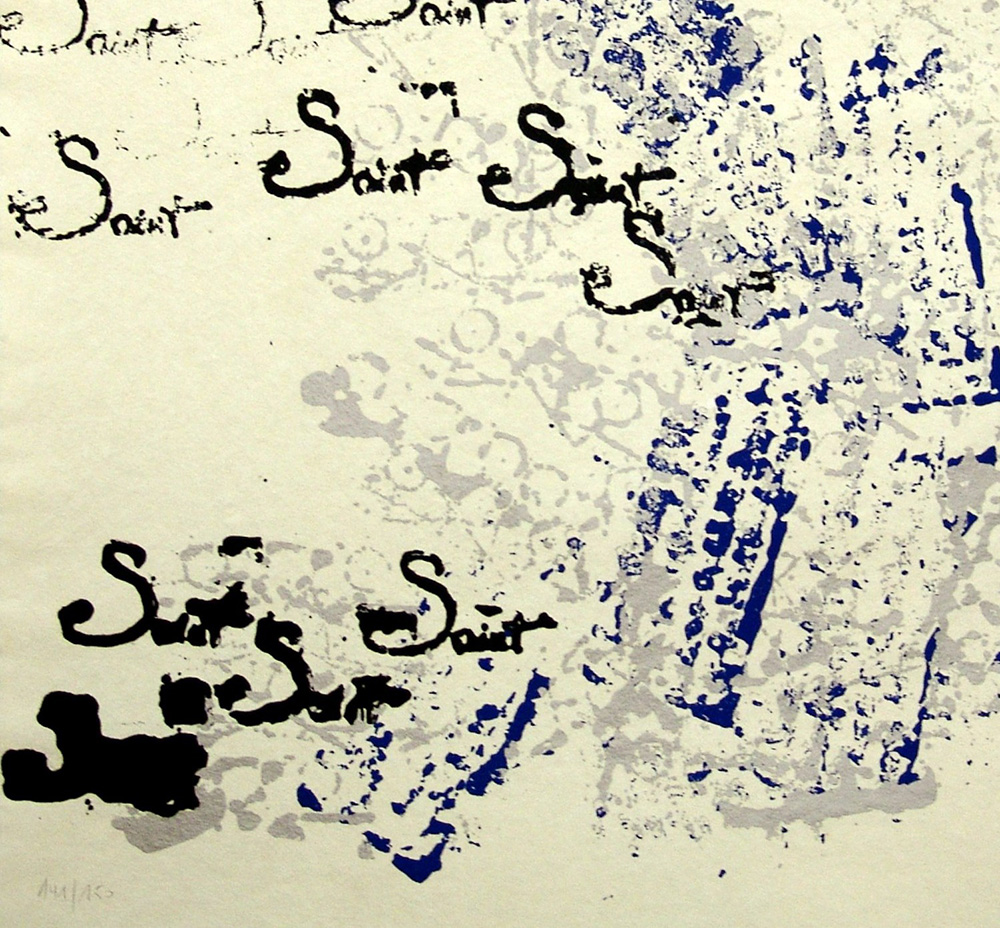 Saint Saint Saint
Saint Saint Saint
Saint
Saint Saint
Saint
141/150